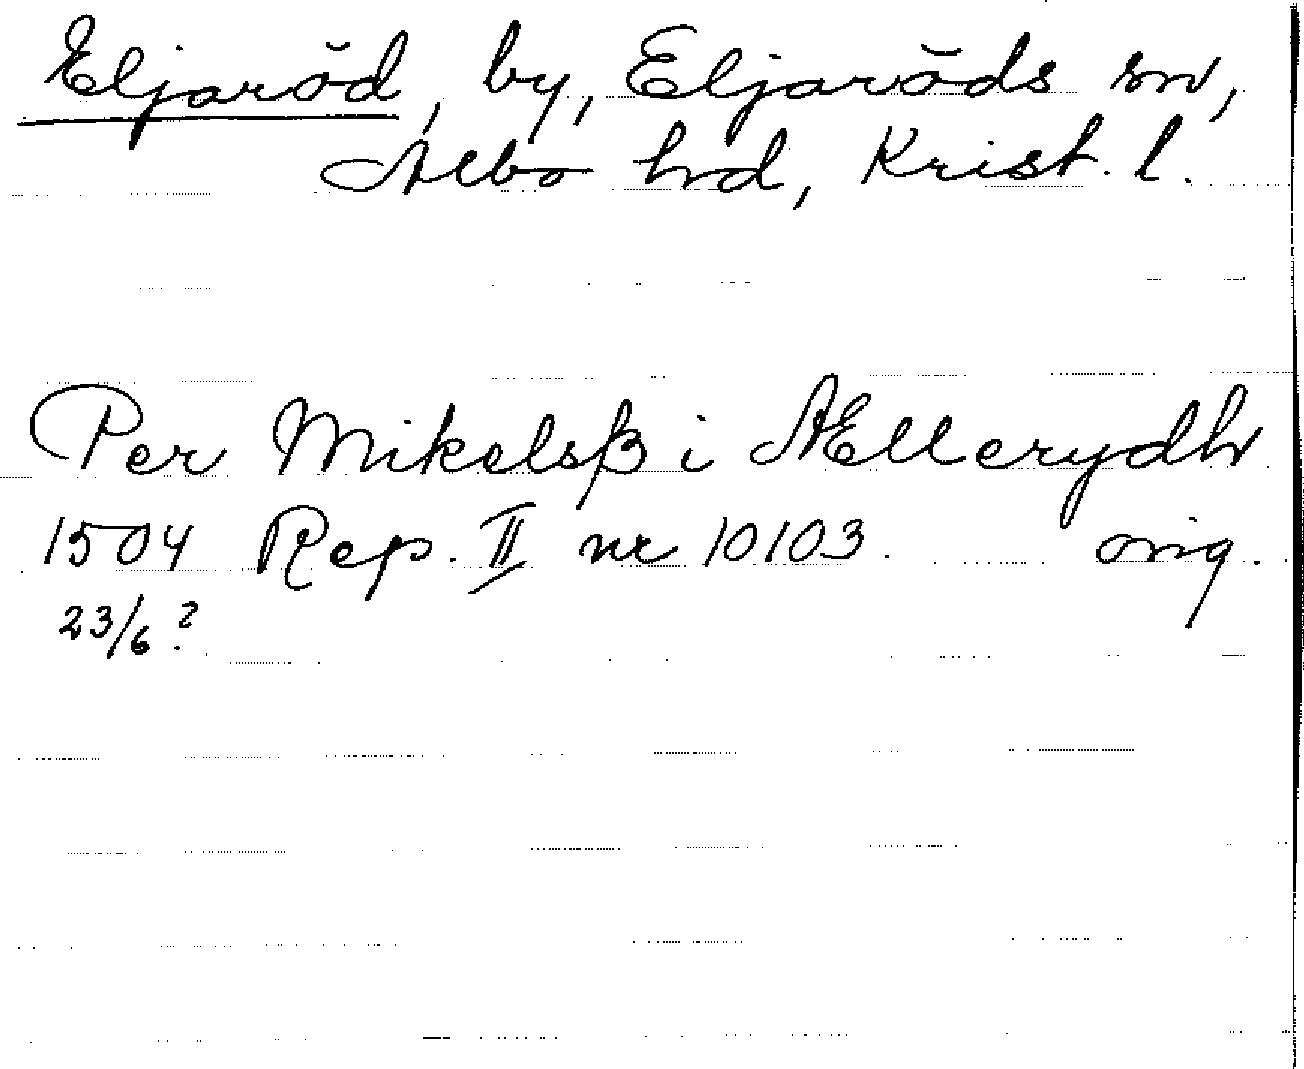 Eljaröd, by, Eljaröds sn,
Albo hrd, Krist. l.
Per Mikelsß i Ællerydh
1504 Rep. II nr 10103. orig.
23/6?